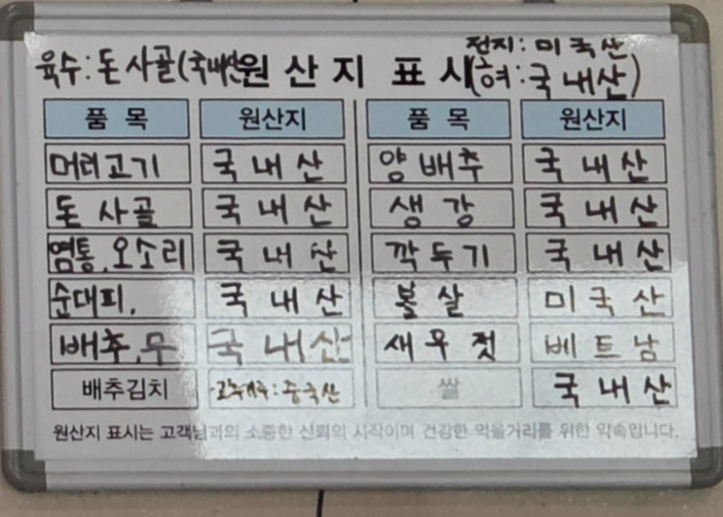 전지: 미국산
육수: 돈사골(국내산) 원산지 표시 (혀: 국내산)
품목 원산지 품목 원산지
머리고기 국내산 양배추 국내산
돈사골 국내산 생강 국내산
염통,오소리 국내산 깍두기 국내산
순대피, 국내산 볼살 미국산
배추,무 국내산 새우젓 베트남
배추김치 고추가루: 중국산 쌀 국내산
원산지 표시는 고객님과의 소중한 신뢰의 시작이며 건강한 먹을거리를 위한 약속입니다.